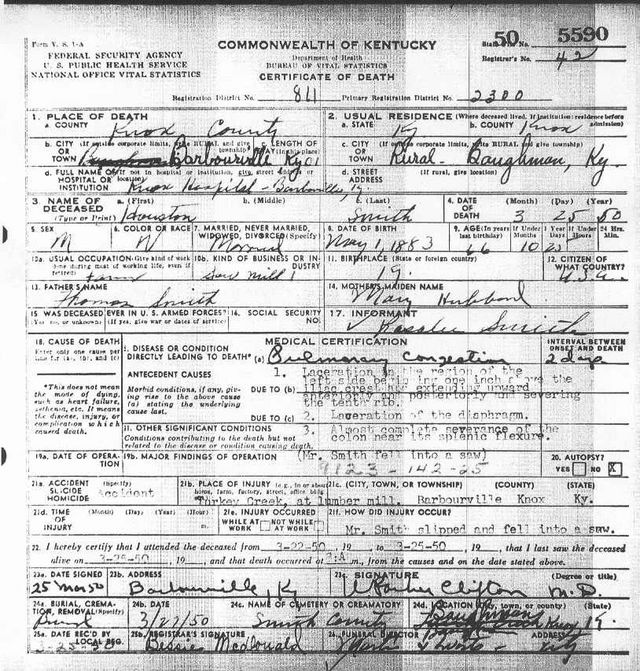 Form V. S. 1-A
FEDERAL SECURITY AGENCY
U. S. PUBLIC HEALTH SERVICE
NATIONAL OFFICE VITAL STATISTICS
COMMONWEALTH OF KENTUCKY
Department of Health
BUREAU OF VITAL STATISTICS
CERTIFICATE OF DEATH
50 5590
Registrar's No. 42
Registration District No. 811 Primary Registration District No. 2300
1. PLACE OF DEATH
a. COUNTY Knox County
b. CITY OR TOWN Barbourville Ky
c. LENGTH OF STAY (in this place)
d. FULL NAME OF HOSPITAL OR INSTITUTION Knox Hospital - Barbourville, Ky.
2. USUAL RESIDENCE (Where deceased lived. If institution: residence before admission)
a. STATE Ky b. COUNTY Knox
c. CITY OR TOWN Rural - Baughman, Ky.
d. STREET ADDRESS (If rural, give location)
3. NAME OF DECEASED (Type or Print)
a. (First) Houston
b. (Middle)
c. (Last) Smith
4. DATE OF DEATH (Month) (Day) (Year) 3 25 50
5. SEX M
6. COLOR OR RACE W
7. MARRIED, NEVER MARRIED, WIDOWED, DIVORCED (Specify) Married
8. DATE OF BIRTH May 1, 1883
9. AGE (In years last birthday) 66 If Under 1 Year Months 10 Days 25 If Under 24 Hrs. Hours Min.
10a. USUAL OCCUPATION (Give kind of work done during most of working life, even if retired) Farm
10b. KIND OF BUSINESS OR INDUSTRY Saw Mill
11. BIRTHPLACE (State or foreign country) Ky.
12. CITIZEN OF WHAT COUNTRY? U.S.A.
13. FATHER'S NAME Thomas Smith
14. MOTHER'S MAIDEN NAME Mary Hubbard
15 WAS DECEASED EVER IN U. S. ARMED FORCES? (Yes, no, or unknown) (If yes, give war or dates of service)
16. SOCIAL SECURITY NO.
17. INFORMANT Smith
18. CAUSE OF DEATH
Enter only one cause per line for (a), (b), and (c)
*This does not mean the mode of dying, such as heart failure, asthenia, etc. It means the disease, injury, or complication which caused death.
MEDICAL CERTIFICATION
INTERVAL BETWEEN ONSET AND DEATH
I. DISEASE OR CONDITION DIRECTLY LEADING TO DEATH* (a) Pulmonary Congestion 2 days
ANTECEDENT CAUSES
Morbid conditions, if any, giving rise to the above cause (a) stating the underlying cause last.
DUE TO (b)
1. Laceration in the region of the left side beginning one inch above the iliac crest extending upward anteriorly and posteriorly and severing the tenth rib.
DUE TO (c) 2. Laceration of the diaphragm.
II. OTHER SIGNIFICANT CONDITIONS
Conditions contributing to the death but not related to the disease or condition causing death.
3. Almost complete severance of the colon near its splenic flexure.
(Mr. Smith fell into a saw)
19a. DATE OF OPERATION
19b. MAJOR FINDINGS OF OPERATION
9123 - 142 - 25
20. AUTOPSY? YES NO X
21a. ACCIDENT SUICIDE HOMICIDE (Specify) Accident
21b. PLACE OF INJURY (e.g., in or about home, farm, factory, street, office bldg.) Turkey Creek, at lumber mill.
21c. (CITY, TOWN, OR TOWNSHIP) (COUNTY) (STATE) Barbourville Knox Ky.
21d. TIME OF INJURY (Month) (Day) (Year) (Hour) m.
21e. INJURY OCCURRED WHILE AT WORK NOT WHILE AT WORK
21f. HOW DID INJURY OCCUR? Mr. Smith slipped and fell into a saw.
22. I hereby certify that I attended the deceased from 3-22-50, 19 , to 3-25-50, 19 , that I last saw the deceased alive on 3-25-50, 19 , and that death occurred at m., from the causes and on the date stated above.
23a. DATE SIGNED 25 Mar 50
23b. ADDRESS Barbourville, Ky
23c. SIGNATURE Clifton (Degree or title) M.D.
24a. BURIAL, CREMATION, REMOVAL (Specify) Burial
24b. DATE 3/27/50
24c. NAME OF CEMETERY OR CREMATORY Smith County
24d. LOCATION (City, town, or county) (State) Baughman Knox Ky.
25a. DATE REC'D BY LOCAL REG. 3-25-50
25b. REGISTRAR'S SIGNATURE Bessie McDonald
26. FUNERAL DIRECTOR ADDRESS